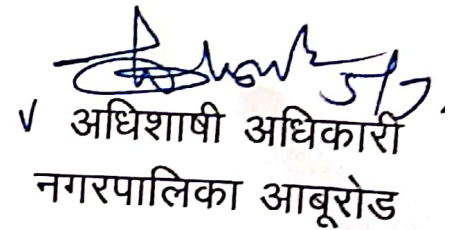 अधिशाषी अधिकारी
नगरपालिका आबूरोड